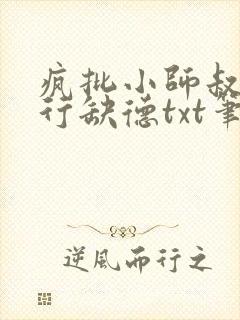 疯批小師叔
行缺德txt筆
逆風而行之